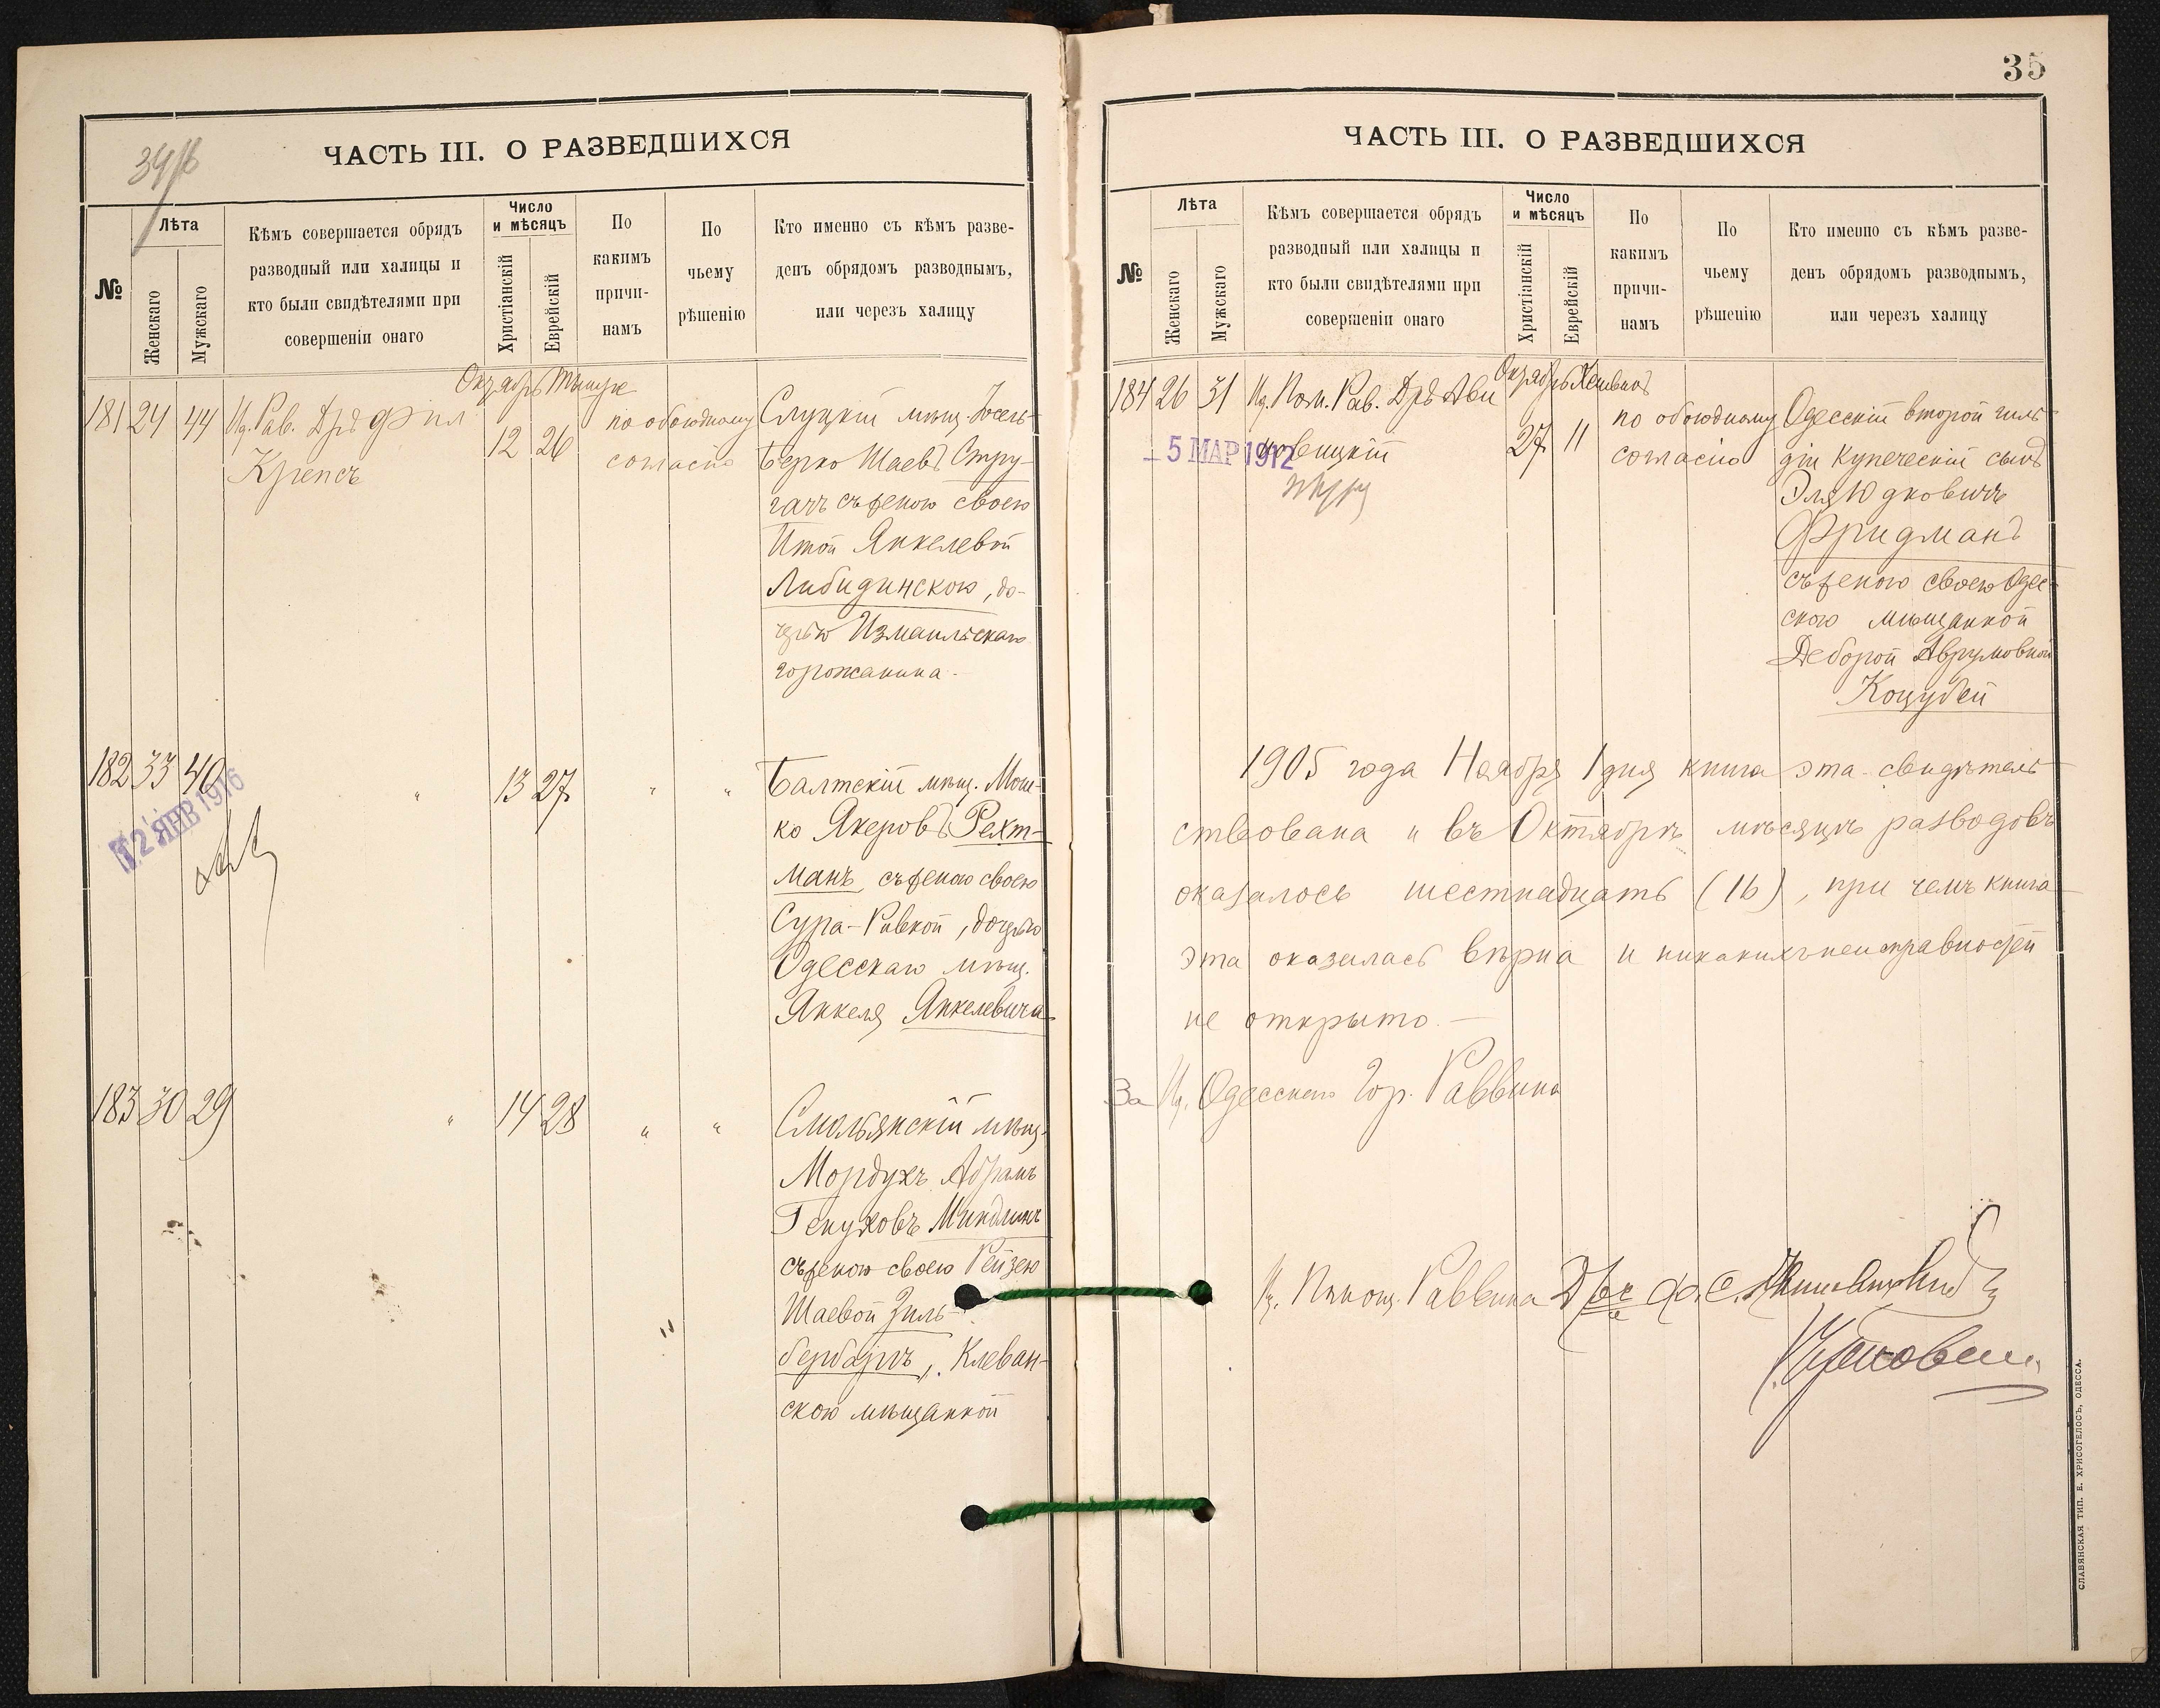 ЧАСТЬ III. О РАЗВЕДШИХСЯ
№
Лѣта
Женскаго
Мужскаго
Кѣмъ совершается обрядъ
разводный или халицы и
кто были свидѣтелями при
совершеніи онаго
Число
и мѣсяцъ
Христіанскій
Еврейскій
По
какимъ
причи-
намъ
По
чьему
рѣшенію
Кто именно съ кѣмъ разве-
денъ обрядомъ разводнымъ,
или черезъ халицу
181 24 44
Рав.
Крепсъ
Октябрь
12 26
по обоюдному
согласію
Слуцкій мѣщ.
Берко Шаевъ Стру-
гачъ съ женою своею
Итой Янкелевой
Либидинскою, до-
черью Измаильскаго
горожанина.
182 33 40
12 ЯНВ 1916
" 13 27 " "
Балтскій мѣщ. Мош-
ко Якеровъ Рехт-
манъ съ женою своею
Сура-Ривкой, дочерью
Одесскаго мѣщ.
Янкеля Янкелевича
183 30 29
" 14 28 " "
Смольянскій мѣщ.
Мордухъ Абрамъ
Генуховъ Миндлинъ
съ женою своею Рейзею
Шаевой Зиль-
бербергъ, Клеван-
скою мѣщанкой
35
ЧАСТЬ III. О РАЗВЕДШИХСЯ
№
Лѣта
Женскаго
Мужскаго
Кѣмъ совершается обрядъ
разводный или халицы и
кто были свидѣтелями при
совершеніи онаго
Число
и мѣсяцъ
Христіанскій
Еврейскій
По
какимъ
причи-
намъ
По
чьему
рѣшенію
Кто именно съ кѣмъ разве-
денъ обрядомъ разводнымъ,
или черезъ халицу
184 26 31
Пом. Рав. Дръ Ави
новицкій
5 МАР 1912
Октябрь Хешвонъ
27 11
по обоюдному
согласію
Одесскій второй гиль-
діи купеческій сынъ
Эля Юдковичъ
Фридманъ
съ женою своею Одес-
скою мѣщанкой
Деборой Аврумовной
Коцубей
1905 года Ноября 1 дня книга эта свидѣтель-
ствована и въ Октябрѣ мѣсяцѣ разводовъ
оказалось шестнадцать (16), при чемъ книга
эта оказалась вѣрна и никакихъ неисправностей
не открыто. —
За Одесскаго Гор. Раввина
Раввина
СЛАВЯНСКАЯ ТИП. Е. ХРИСОГЕЛОСЪ, ОДЕССА.